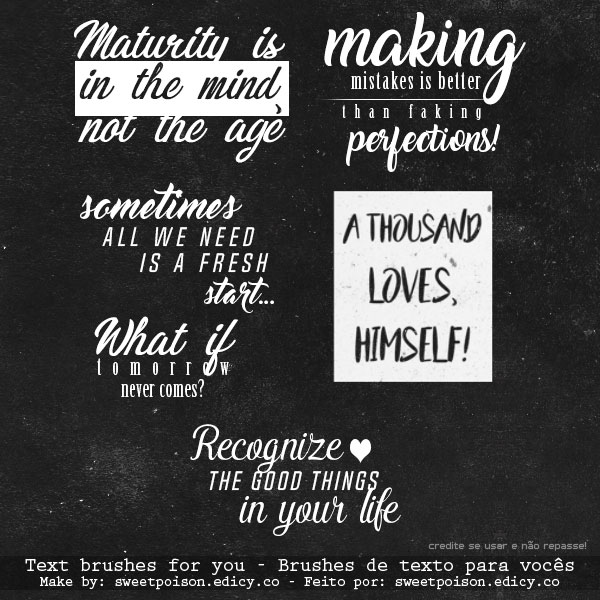 Maturity is
in the mind,
not the age
making
mistakes is better
than faking
perfections!
sometimes
ALL WE NEED
IS A FRESH
start...
A THOUSAND
LOVES,
HIMSELF!
What if
tomorrow
never comes?
Recognize
THE GOOD THINGS
in your life
credite se usar e não repasse!
Text brushes for you - Brushes de texto para vocês
Make by: sweetpoison.edicy.co - Feito por: sweetpoison.edicy.co